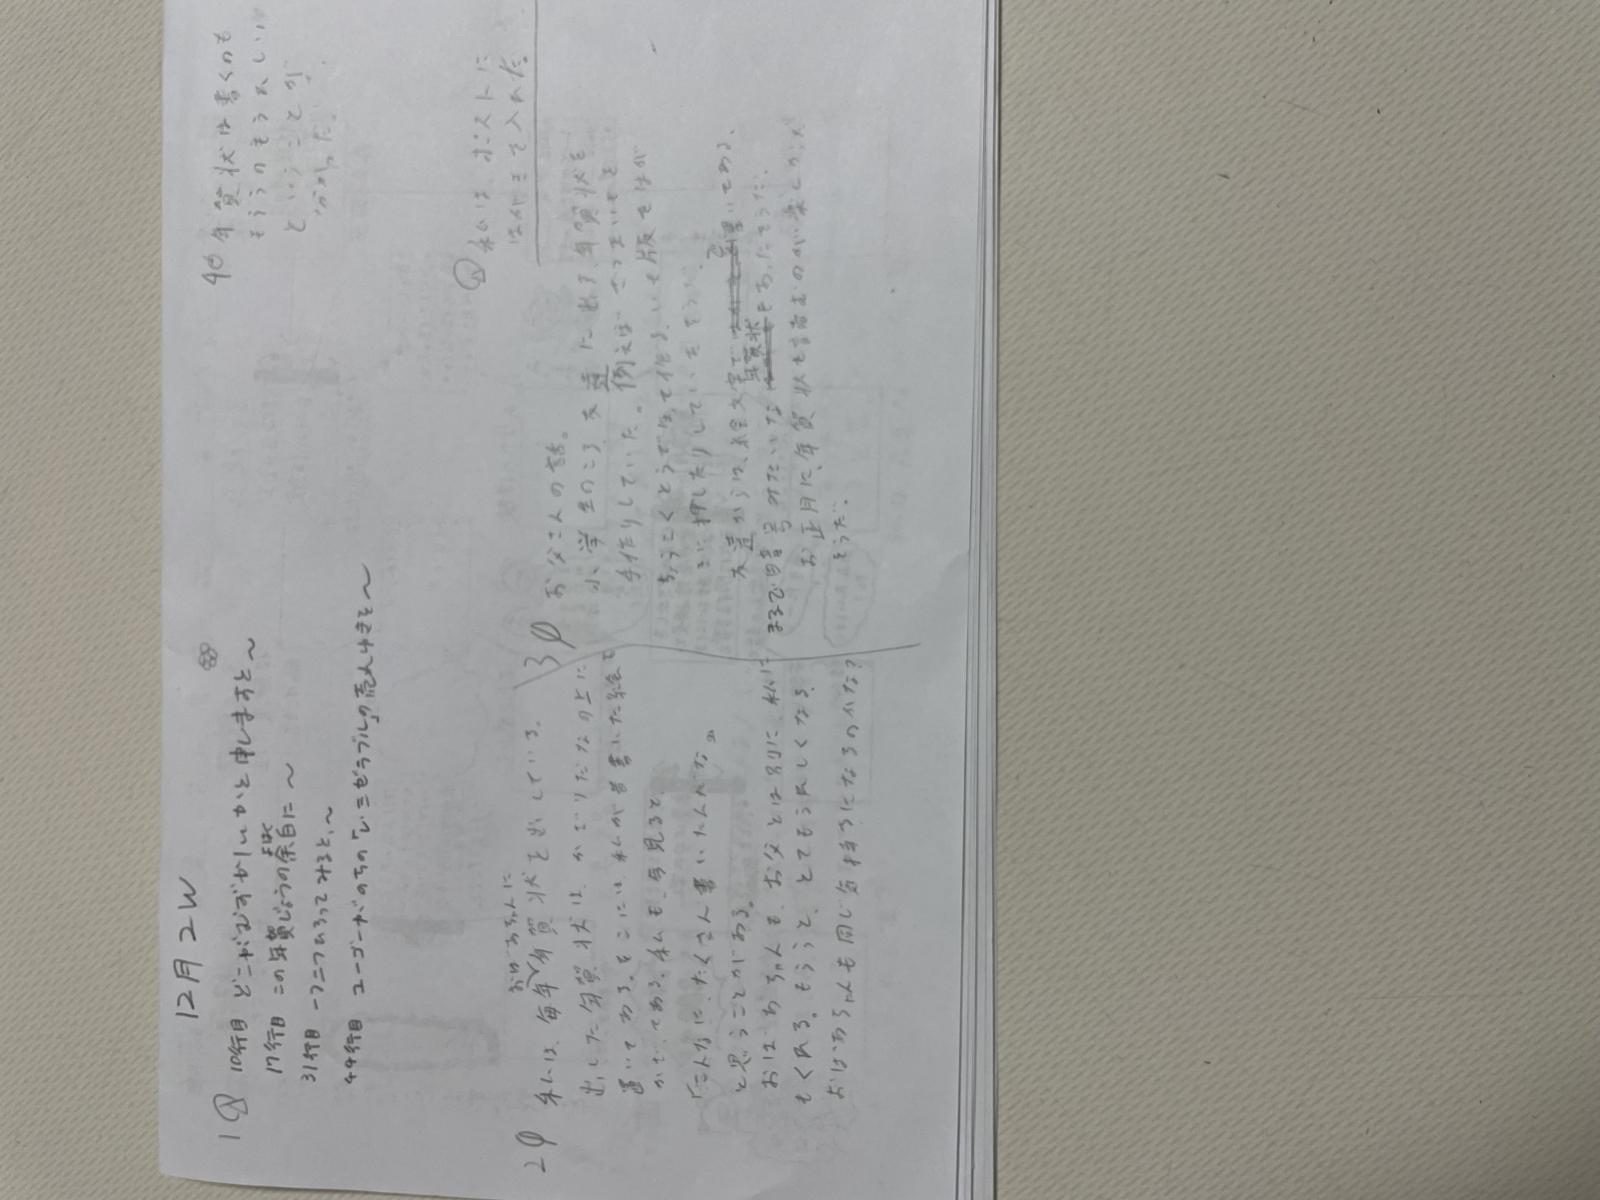 12月2W
1φ
10行目 どこがむずかしいかと申しますと〜
17行目 この年賀じょうの余白に〜
よはく
31行目 一つ一つひろってみると、〜
44行目 ユーゴーがのちの「レ・ミゼラブル」の売れゆきを〜
2φ
おばあちゃんに
私は、毎年年賀状を出している。
出した年賀状は、かざりだなの上に
置いてある。そこには私が昔書いた絵も
かざってある。私も、毎年見ると
「こんなに、たくさん書いたんだな。」
と思うことがある。
おばあちゃんも、お父とは別に、私に
もくれる。もらうと、とてもうれしくなる。
おばあちゃんも同じ気持ちになるのかな?
3φ
お父さんの話。
小学生のころ、友達に出す年賀状を
手作りしていた。例えば、さつまいもを
ちょうこくとうでほって作る、いも版をはが
きに押したりしていたそうだ。
友達からは、絵文字で 書いてある、
まるで暗号みたいな年賀状もあったそうだ。
お正月に、年賀状を読むのが楽しみだった
そうだ。
4φ
年賀状は書くのも
もらうのもうれしい
ということが
分かった。
私は、ポストに
はがきを入れた。